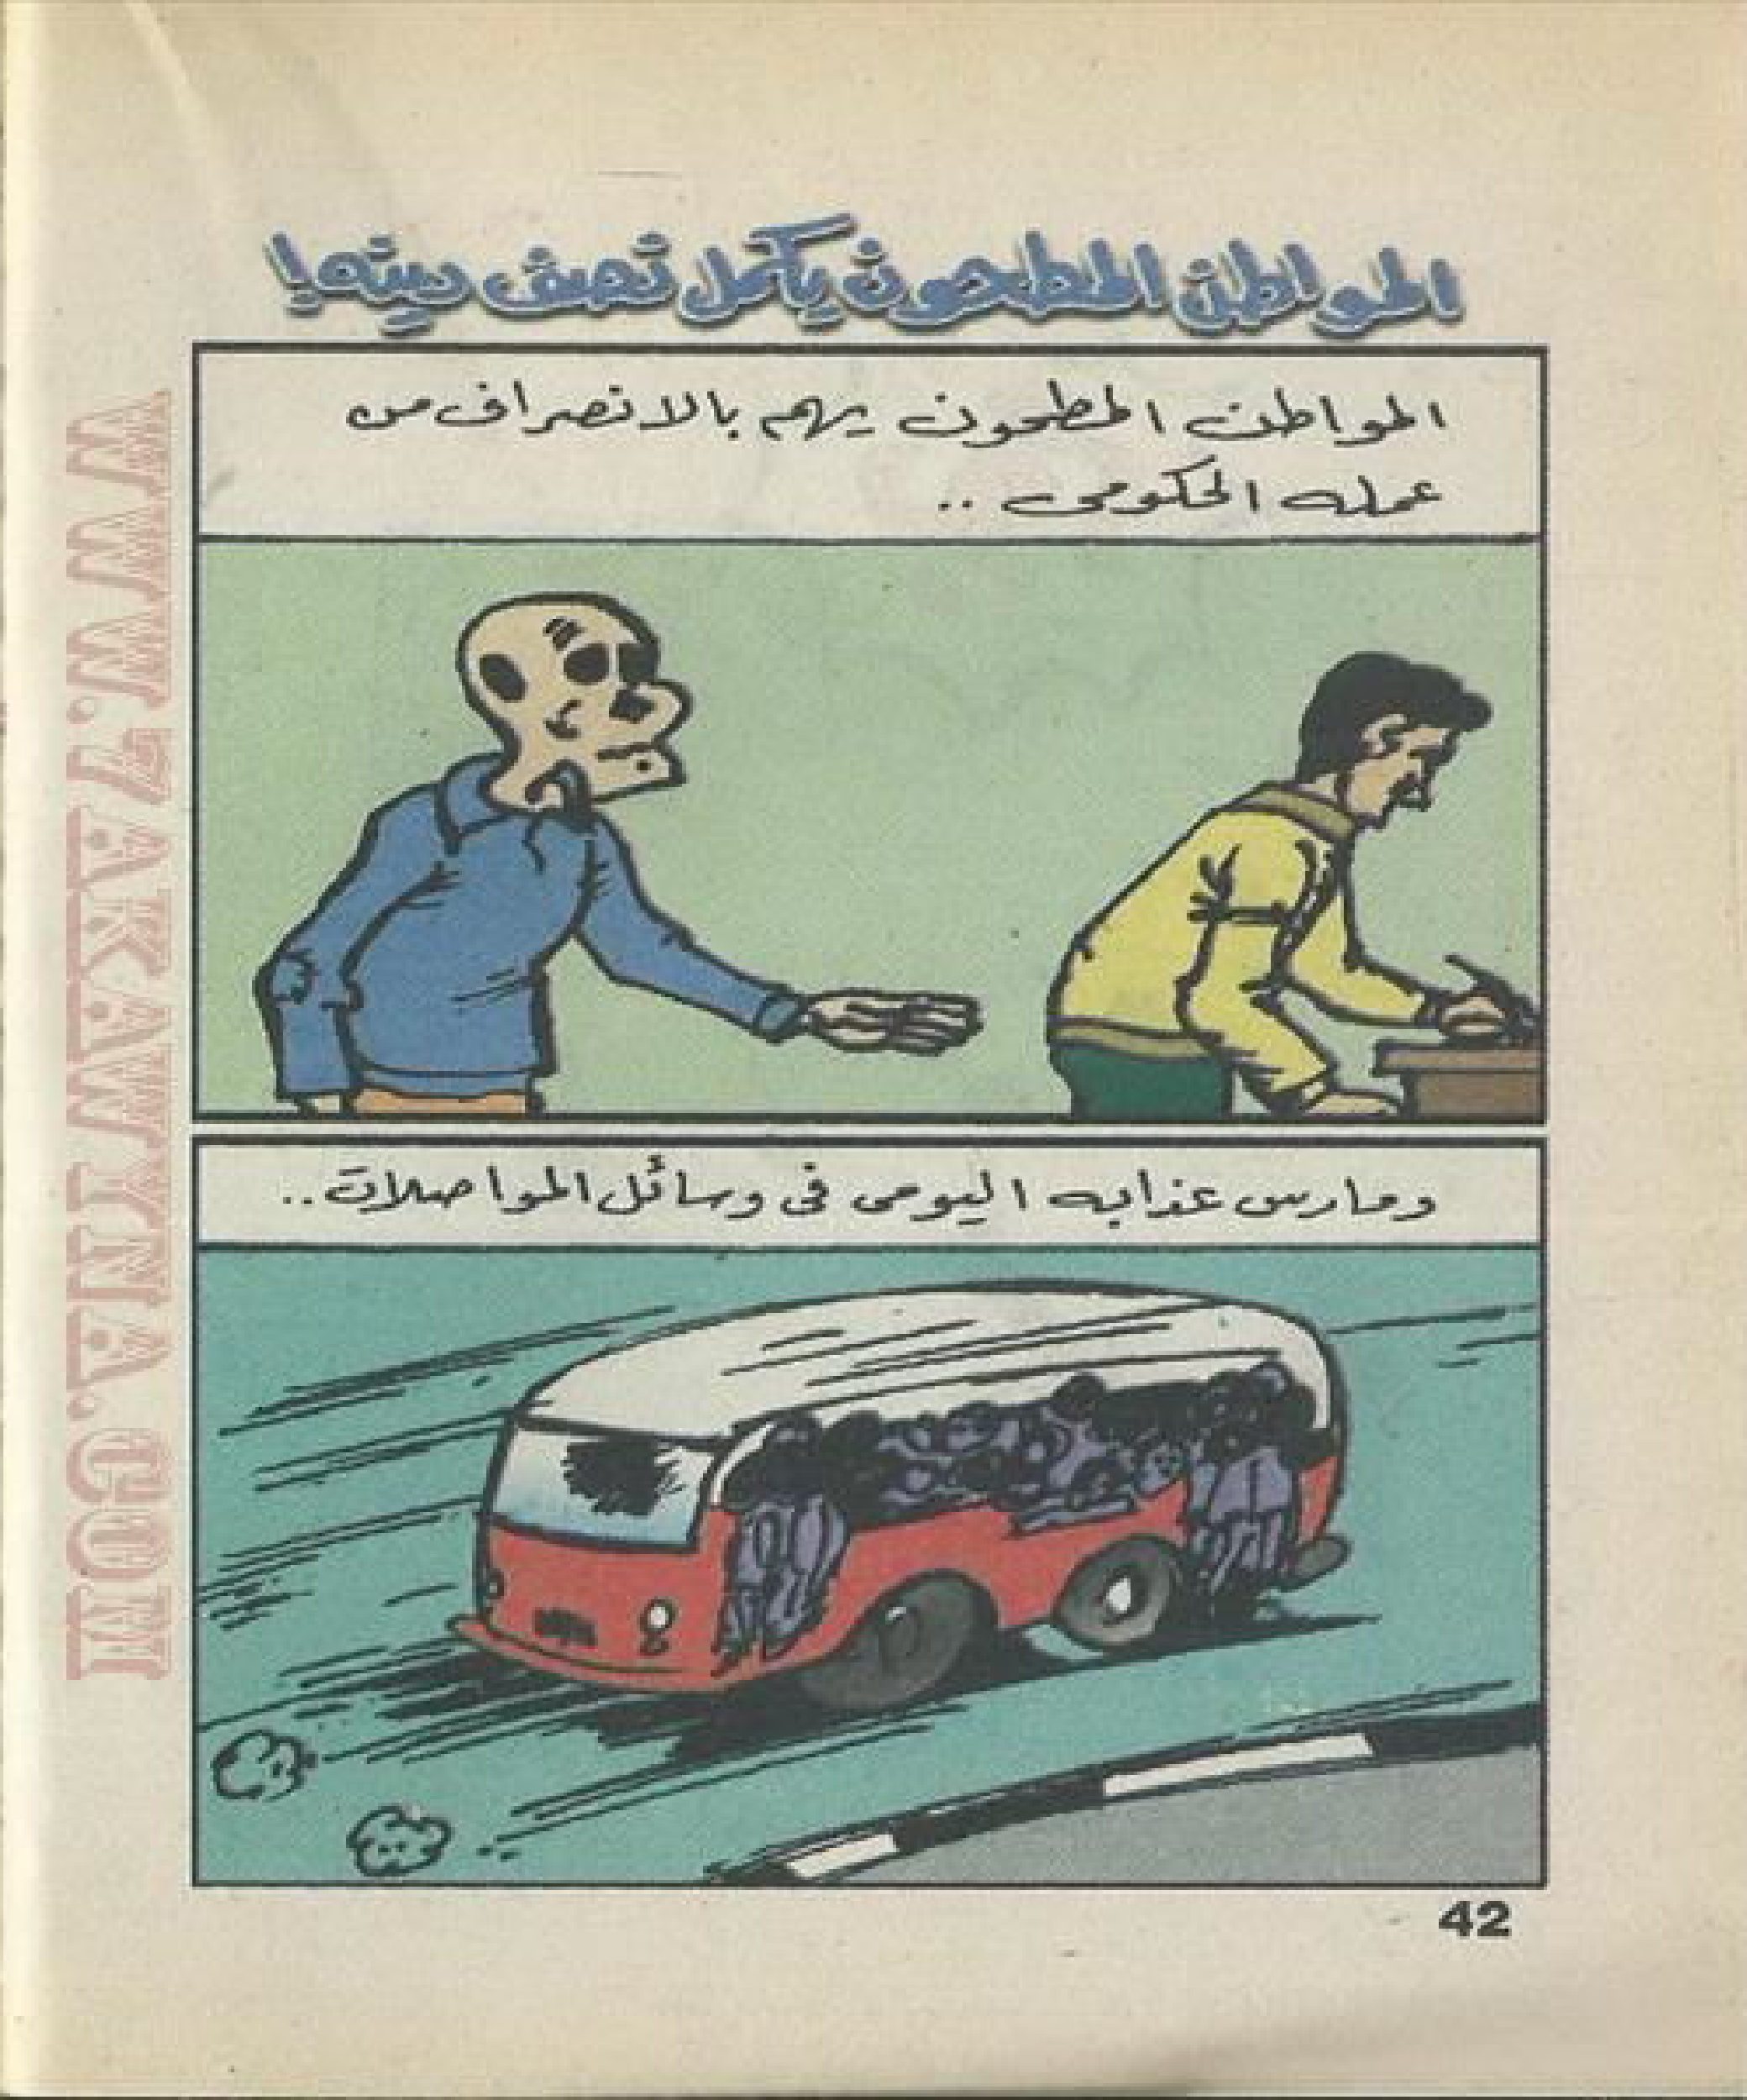 المواطن المطحون يكمل نصف دينه!
المواطن المطحون يهم بالانصراف من
عمله الحكومى ..
ومارس عذابه اليومى فى وسائل المواصلات..
42
WWW.7AKAWITNA.COM